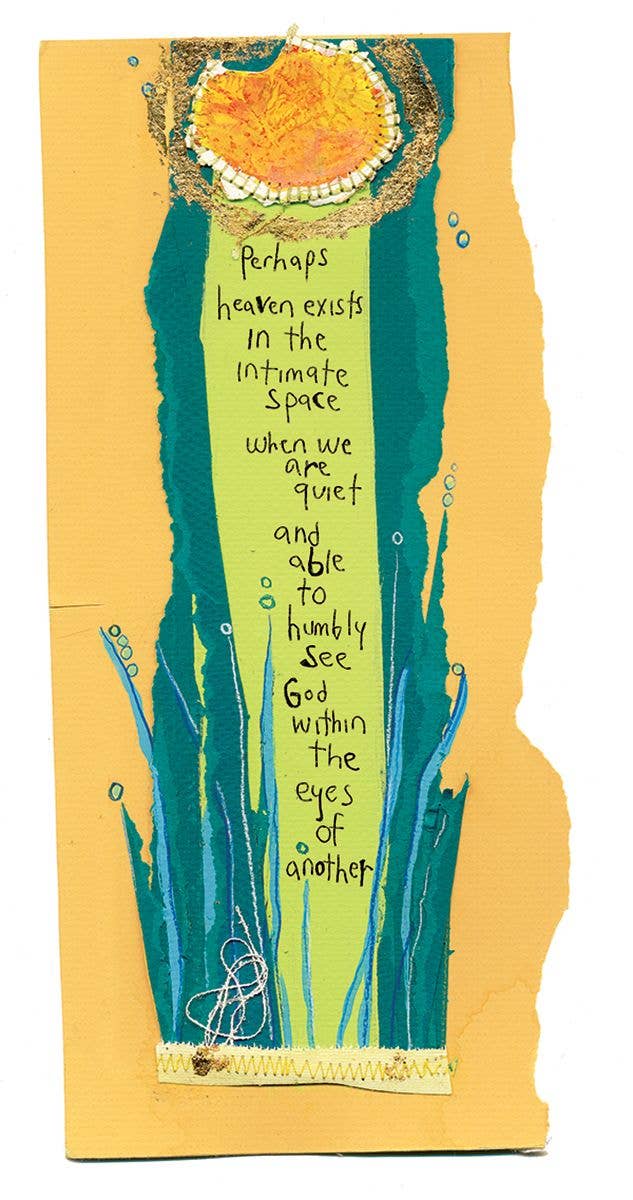 Perhaps
heaven exists
in the
intimate
space
when we
are
quiet
and
able
to
humbly
see
God
within
the
eyes
of
another